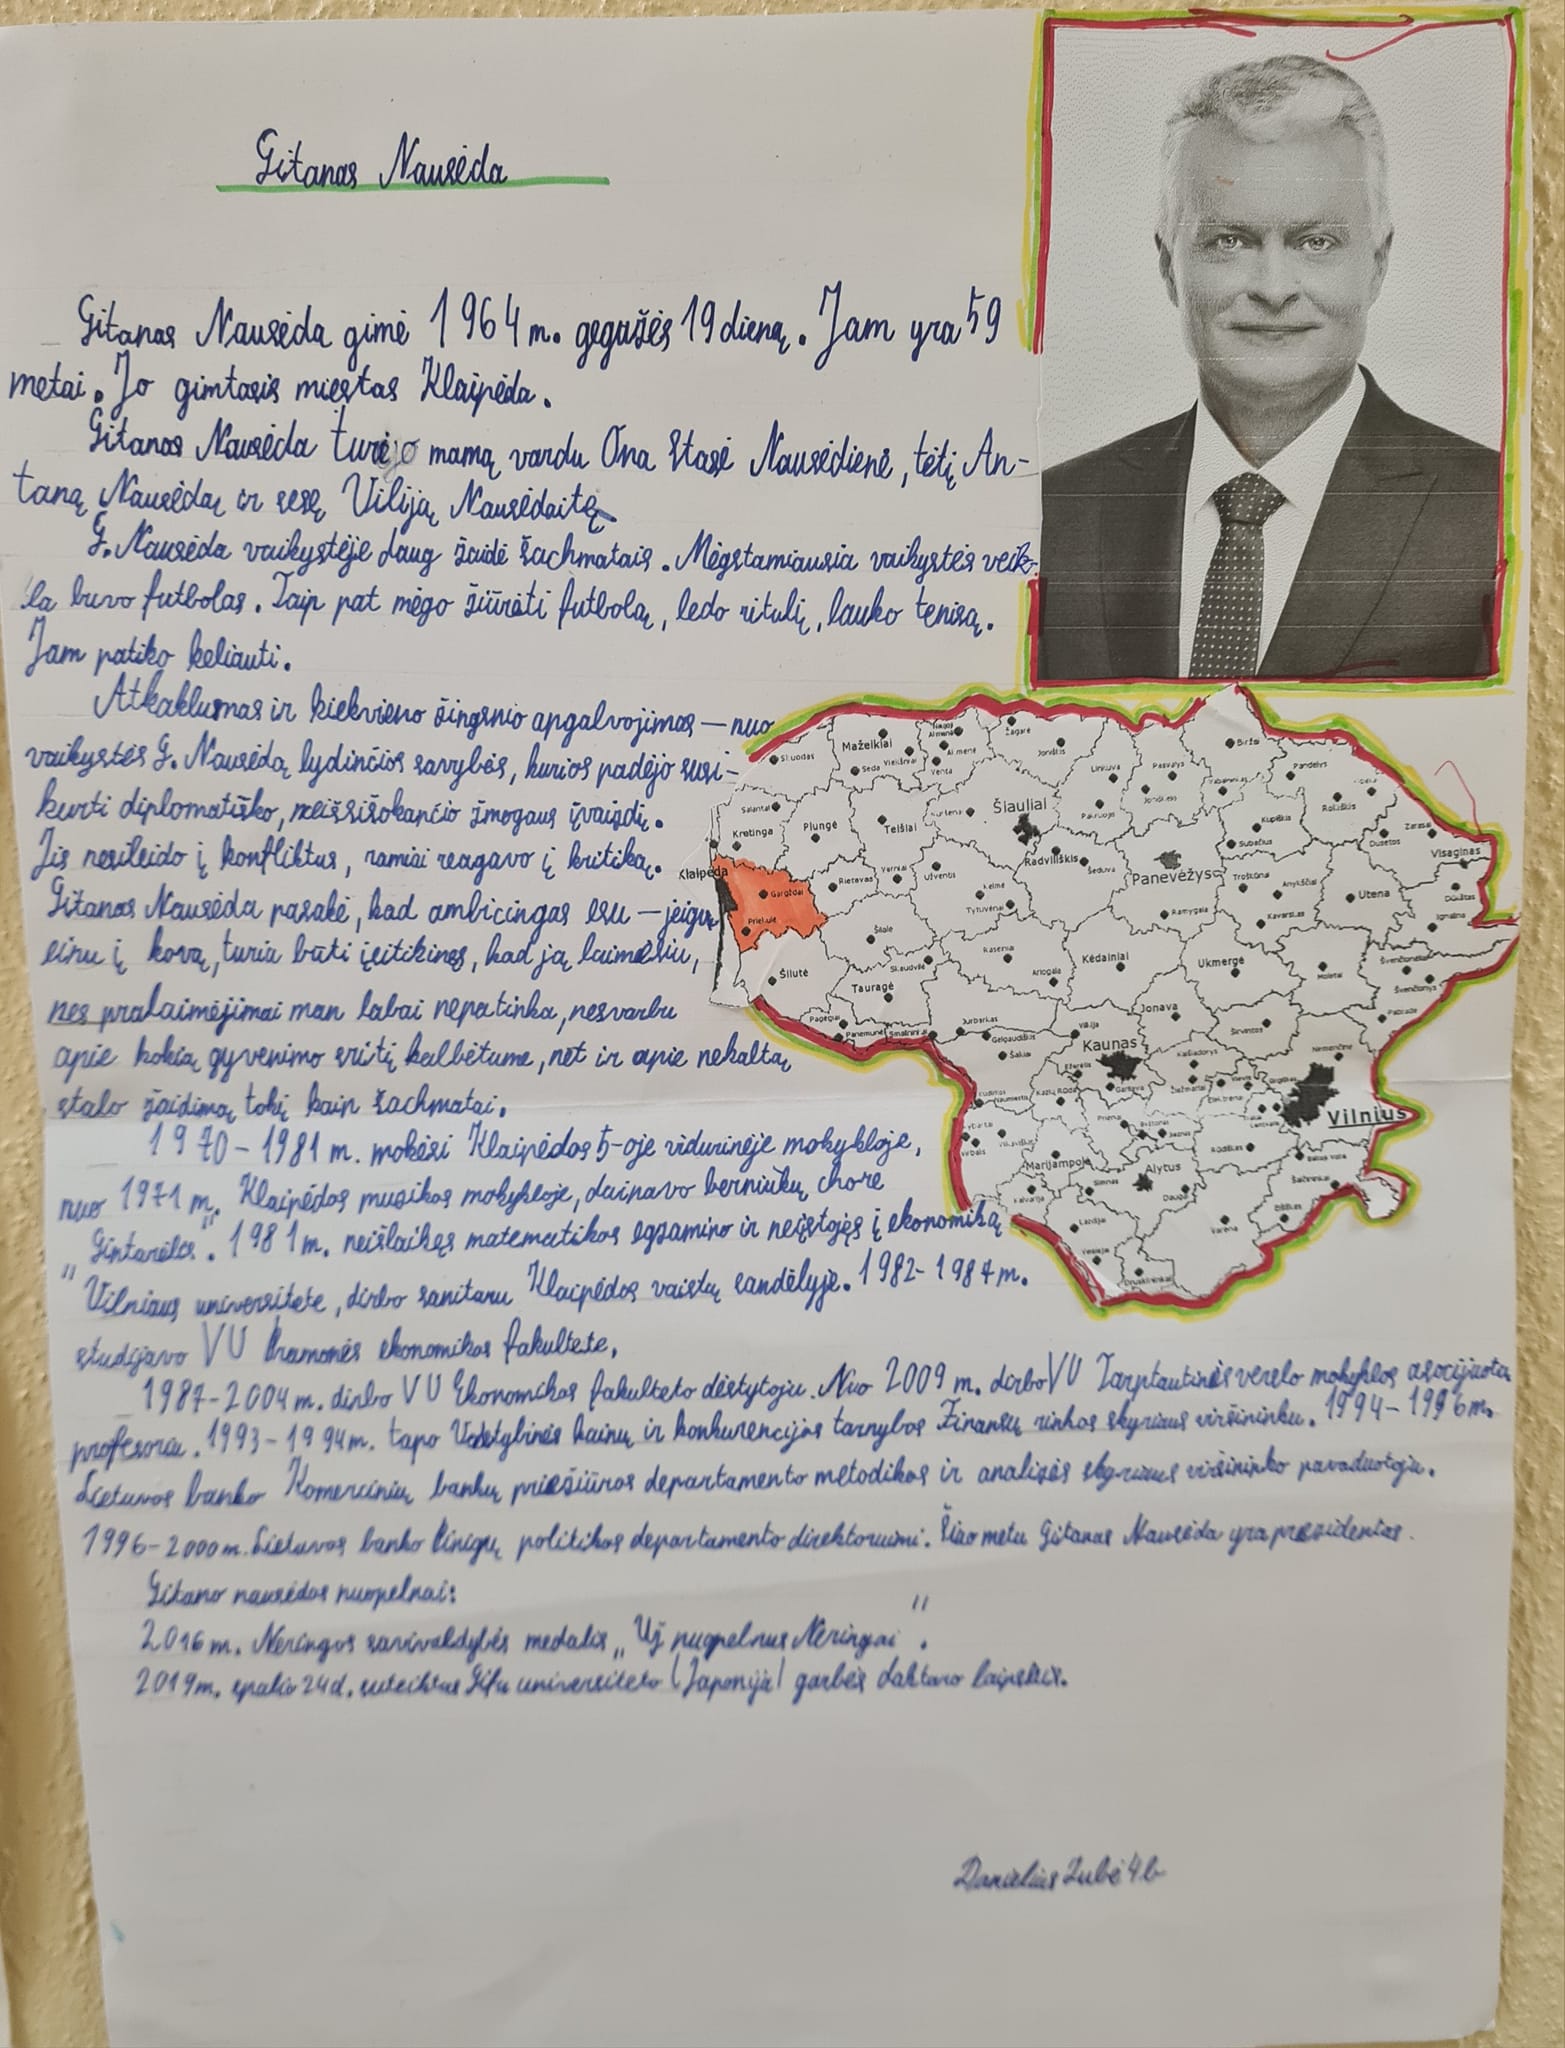 Gitanas Nausėda
Gitanas Nausėda gimė 1964 m. gegužės 19 dieną. Jam yra 59
metai. Jo gimtasis miestas Klaipėda.
Gitanas Nausėda turėjo mamą vardu Ona Stasė Nausėdienė, tėtį An-
taną Nausėdą ir sesę Viliją Nausėdaitę.
G. Nausėda vaikystėje daug žaidė šachmatais. Mėgstamiausia vaikystės veik-
la buvo futbolas. Taip pat mėgo žiūrėti futbolą, ledo ritulį, lauko tenisą.
Jam patiko keliauti.
Atkaklumas ir kiekvieno žingsnio apgalvojimas – nuo
vaikystės G. Nausėdą lydinčios savybės, kurios padėjo susi-
kurti diplomatiško, neiššišokančio žmogaus įvaizdį.
Jis nesileido į konfliktus, ramiai reagavo į kritiką.
Gitanas Nausėda pasakė, kad ambicingas esu – jeigu
einu į kovą, turiu būti įsitikinęs, kad ją laimėsiu,
nes pralaimėjimai man labai nepatinka, nesvarbu
apie kokią gyvenimo sritį kalbėtume, net ir apie nekaltą
stalo žaidimą tokį kaip šachmatai.
1970 – 1981 m. mokėsi Klaipėdos 5-oje vidurinėje mokykloje,
nuo 1971 m. Klaipėdos muzikos mokykloje, dainavo berniukų chore
"Gintarėlis". 1981 m. neišlaikęs matematikos egzamino ir neįstojęs į ekonomiką
Vilniaus universitete, dirbo sanitaru Klaipėdos vaistų sandėlyje. 1982 - 1987 m.
studijavo VU Pramonės ekonomikos fakultete.
1987 - 2004 m. dirbo VU Ekonomikos fakulteto dėstytoju. Nuo 2009 m. dirbo VU Tarptautinės verslo mokyklos asocijuotu
profesoriu. 1993 - 1994 m. tapo Valstybinės kainų ir konkurencijos tarnybos Finansų rinkos skyriaus viršininku. 1994 – 1996 m.
Lietuvos banko Komercinių bankų priežiūros departamento metodikos ir analizės skyriaus viršininko pavaduotoju.
1996 - 2000 m. Lietuvos banko Pinigų politikos departamento direktoriumi. Šiuo metu Gitanas Nausėda yra prezidentas.
Gitano nausėdos nuopelnai:
2016 m. Neringos savivaldybės medalis „Už nuopelnus Neringai".
2019 m. spalio 24 d. suteiktas Gifu universiteto (Japonija) garbės daktaro laipsnis.
Danielius Zubė 4b
Skuodas
Mažeikiai
Seda
Viekšniai
Venta
Akmenė
Žagarė
Joniškis
Linkuva
Pasvalys
Biržai
Pandėlys
Salantai
Kretinga
Plungė
Telšiai
Šiauliai
Pakruojis
Joniškėlis
Kupiškis
Rokiškis
Subačius
Dusetos
Zarasai
Klaipėda
Gargždai
Priekulė
Rietavas
Varniai
Užventis
Kelmė
Tytuvėnai
Radviliškis
Šeduva
Panevėžys
Troškūnai
Anykščiai
Utena
Visaginas
Dūkštas
Ignalina
Ramygala
Kavarskas
Šilutė
Šilalė
Skaudvilė
Tauragė
Raseiniai
Ariogala
Kėdainiai
Ukmergė
Molėtai
Švenčionėliai
Švenčionys
Pagėgiai
Panemunė
Smalininkai
Jurbarkas
Gelgaudiškis
Šakiai
Vilkija
Jonava
Širvintos
Pabradė
Kaunas
Ežerėlis
Garliava
Kazlų Rūda
Kaišiadorys
Žiežmariai
Vievis
Nemenčinė
Vilnius
Prienai
Birštonas
Marijampolė
Kalvarija
Simnas
Alytus
Daugai
Rūdiškės
Baltoji Vokė
Šalčininkai
Eišiškės
Varėna
Lazdijai
Veisiejai
Druskininkai